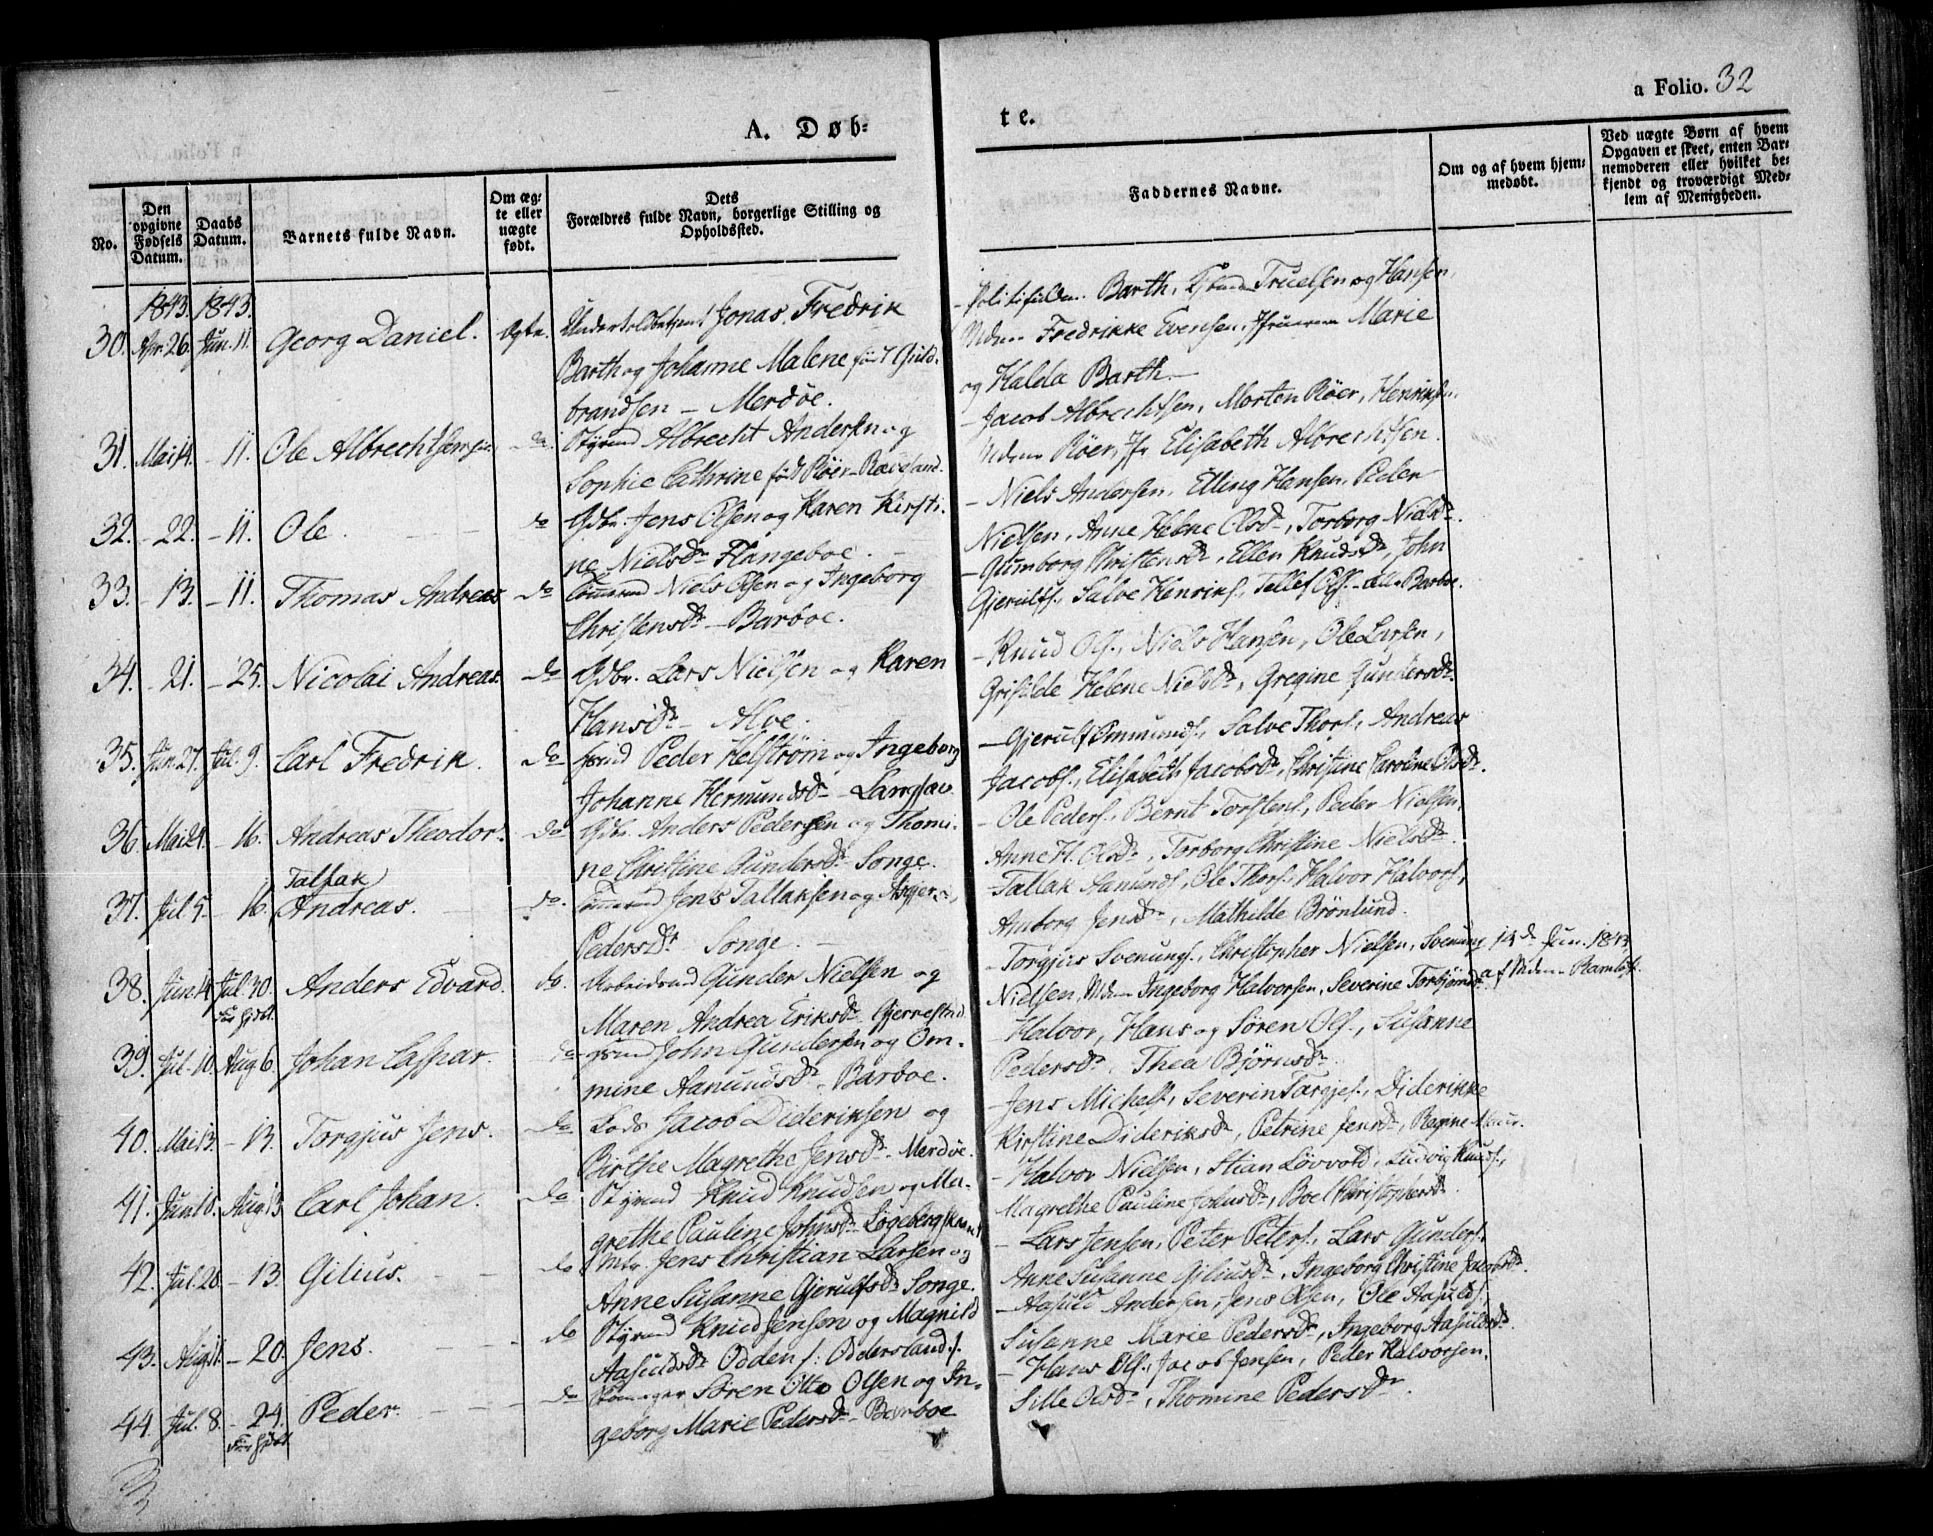 a Folio. 32
A. Døb-
te.
No.
Den opgivne Fødsels Datum.
Daabs Datum.
Barnets fulde Navn.
Om ægte eller uægte født.
Dets Forældres fulde Navn, borgerlige Stilling og Opholdssted.
Faddernes Navne.
Om og af hvem hjemmedøbt.
Ved uægte Børn af hvem Opgaven er skeet, enten Barnemoderen eller hvilket bekjendt og troværdigt Medlem af Menigheden.
1843. 1843.
30. Apr. 26. Jun. 11. Georg Daniel. Ægte. Jonas Fredrik
Barth og Johanne Malene født Guld-
brandsen – Merdøe.
Barth, Truelsen og Hansen,
Fredrikke Evensen, Marie
og Halda Barth.
31. Mai 14. – 11. Ole Albrechtsen do. Styrmd Albrecht Andersen og
Sophie Cathrine født Röer – Rævesand.
– Jacob Albrechtsen, Morten Röer, Henriksen,
Röer, Jfr Elisabeth Albrechtsen.
32. – 22. – 11. Ole. do Gdbr. Jens Olsen og Karen Kirsti-
ne Nielsdr Flangeboe.
– Niels Andersen, Elling Hansen, Peder
Nielsen, Anne Helene Olsdr, Torborg Nielsdr.
33. – 13. – 11. Thomas Andreas do Niels Olsen og Ingeborg
Christensdr – Barboe.
– Gumborg Christensdr, Ellen Knudsdr, John
Gjerulfs., Salve Henriks., Tellef Ols. – alle Barboe.
34. – 21. – 25. Nicolai Andreas. do Gdbr. Lars Nielsen og Karen
Hansdr – Alve.
– Knud Ols., Niels Hansen, Ole Larsen,
Grisilde Helene Nielsdr, Gregine Gundersdr
35. Jun. 27. Jul. 9. Carl Fredrik. do Peder Helström og Ingeborg
Johanne Hermundsdr – Langsæv
– Gjerulf Omunds., Salve Thors., Andreas
Jacobs., Elisabeth Jacobsdr, Christine Caroline Olsdr.
36. Mai 24. – 16. Andreas Theodor. do Gdbr. Anders Pedersen og Thomi-
ne Christine Gundersdr – Songe.
– Ole Peders., Bernt Torstens., Peder Nielsen,
Anne H. Olsdr, Torborg Christine Nielsdr.
37. Jul. 5. – 16. Tallak
Andreas. do. Jens Tallaksen og
Pedersdr Songe.
– Tallak Aanunds., Ole Thors., Halvor Halvors.,
Anborg Jensdr, Mathilde Brönlund.
38. Jun. 14. Jul. 30. Anders Edvard. do. Arbeidsmd Gunder Nielsen og
Maren Andrea Eriksdr Gjerrestad
– Torgjus Svenungs., Christopher Nielsen, Svenung
Nielsen, Ingeborg Halvorsen, Severine Torbjörnsdr.
14d Jun. 1843
af
39. Jul. 10. Aug. 6. Johan Caspar. do John Gundersen og Om-
mine Aanundsdr – Barboe.
– Halvor, Hans og Sören Ols., Susanne
Pedersdr, Thea Björnsdr.
40. Mai 13. – 13. Torgjus Jens. do Lods Jacob Dideriksen og
Birthe Magrethe Jensdr – Merdöe.
– Jens Michels., Severin Targjes., Diderikke
Kirstine Dideriksdr, Petrine Jensdr,
41. Jun. 18. Aug. 13 Carl Johan. do Styrmd Knud Knudsen og Ma-
grethe Pauline Johnsdr
– Halvor Nielsen, Stian Lövvold, Ludvig Knuds.,
Magrethe Pauline Johnsdr, Boel Christophersdr.
42. Jul. 20. – 13. Gilius. do Mtr. Jens Christian Larsen og
Anne Susanne Gjerulfsdr Songe.
– Lars Jensen, Peter Peters., Lars Gunders.
Anne Susanne Giliusdr, Ingeborg Christine Jacobsdr.
43. Aug. 11. – 20. Jens. do Styrmd Knud Jensen og Magnild
Aasuldsdr Odden /: Oddersland :/.
– Aasuld Andersen, Jens Olsen, Ole Aasulds.,
Susanne Marie Pedersdr, Ingeborg Aasuldsdr.
44. Jul. 8. – 24. Peder. do Sören Otto Olsen og In-
geborg Marie Pedersdr – Barboe
– Hans Ols., Jacob Jensen, Peder Halvorsen,
Sille Olsdr, Thomine Pedersdr.